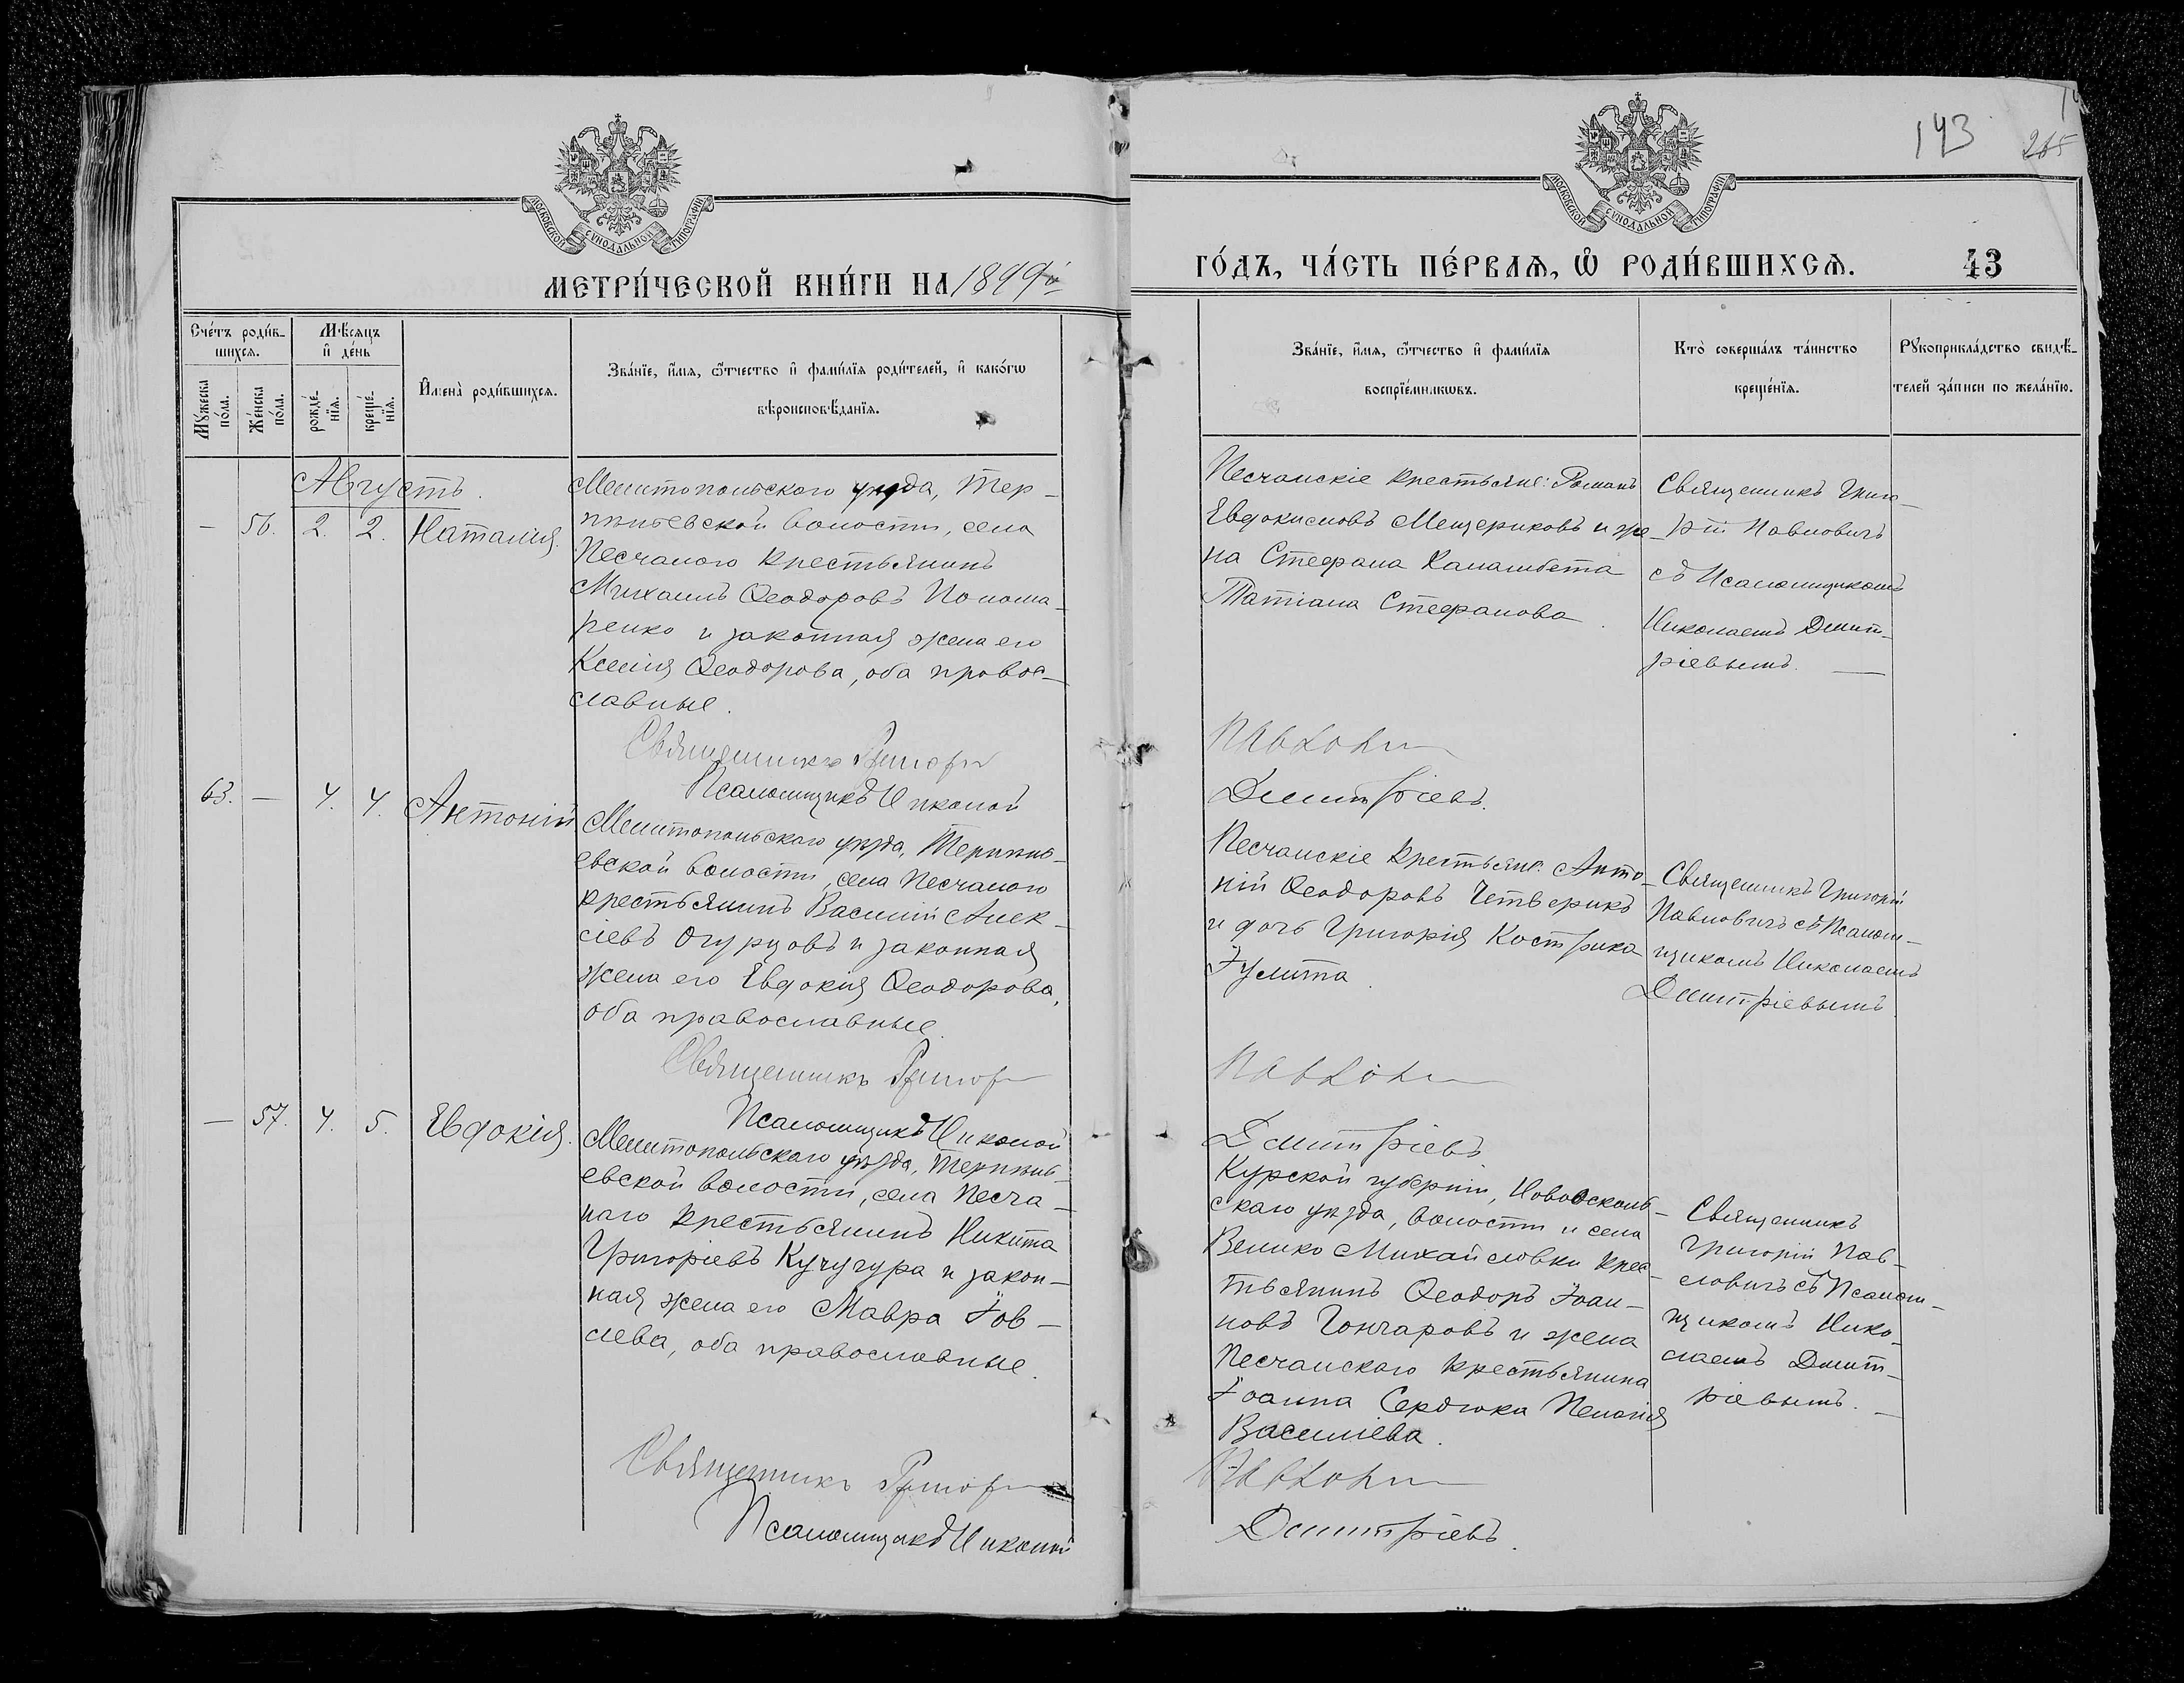 МОСКОВСКОЙ СѴНОДАЛЬНОЙ ТИПОГРАФІИ
МЕТРИ́ЧЕСКОЙ КНИ́ГИ НА 1899й
Сче́тъ роди́в-
шихсѧ.
Мꙋ́жеска по́ла.
Же́нска по́ла.
Мѣ́сѧцъ
и҆ де́нь
рожде́-
нїѧ.
креще́-
нїѧ.
И҆мена̀ роди́вшихсѧ.
Зва́нїе, и҆́мѧ, ѻ҆́тчество и҆ фами́лїѧ роди́телей, и҆ како́гѡ
вѣроисповѣ́данїѧ.
Августъ.
— 56. 2. 2. Наталия.
Мелитопольскаго уѣзда, Тер-
пѣньевской волости, села
Песчаного крестьянинъ
Михаилъ Ѳеодоровъ Понома-
ренко и законная жена его
Ксенія Ѳеодорова, оба правос-
лавные.
Священникъ Григорій
Псаломщикъ Николай
63. — 4. 4. Антоній
Мелитопольскаго уѣзда, Терпѣнь-
евской волости, села Песчаного
крестьянинъ Василий Алек-
сіевъ Огурцовъ и законная
жена его Евдокия Ѳеодорова,
оба православные.
Священникъ Григорій
Псаломщикъ Николай
— 57. 4. 5. Евдокія.
Мелитопольскаго уѣзда, Терпѣнь-
евской волости, села Песча-
наго крестьянинъ Никита
Григоріевъ Кучугура и закон-
ная жена его Мавра Іов-
лева, оба православные.
Священникъ Григорій
Псаломщикъ Николай
143
265
МОСКОВСКОЙ СѴНОДАЛЬНОЙ ТИПОГРАФІИ
ГО́ДЪ, ЧА́СТЬ ПЕ́РВАѦ, Ѡ҆ РОДИ́ВШИХСѦ.
43
Зва́нїе, и҆́мѧ, ѻ҆́тчество и҆ фами́лїѧ
воспрїе́мникѡвъ.
Кто̀ соверша́лъ та́инство
креще́нїѧ.
Рꙋкоприкла́дство свидѣ́-
телей за́писи по жела́нїю.
Песчанскіе крестьяне: Романъ
Евдокимовъ Мещериковъ и же-
на Стефана Каламбета
Татіана Стефанова.
Священникъ Григо-
рій Павловичъ
съ Псаломщикомъ
Николаемъ Дмит-
ріевымъ. —
Павловичъ
Дмитріевъ.
Песчанскіе крестьяне: Анто-
ній Ѳеодоровъ Четверикъ
и дочь Григорія Кострика
Іулита.
Священникъ Григорій
Павловичъ съ Псалом-
щикомъ Николаемъ
Дмитріевымъ.
Павловичъ
Дмитріевъ
Курской губерніи, Новоосколь-
скаго уѣзда, волости и села
Велико Михайловки крес-
тьянинъ Ѳеодоръ Іоан-
новъ Гончаровъ и жена
Песчанскаго крестьянина
Іоанна Сердюка Пелагія
Василіева.
Священникъ
Григорій Пав-
ловичъ съ Псалом-
щикомъ Нико-
лаемъ Дмит-
ріевымъ. —
Павловичъ
Дмитріевъ.